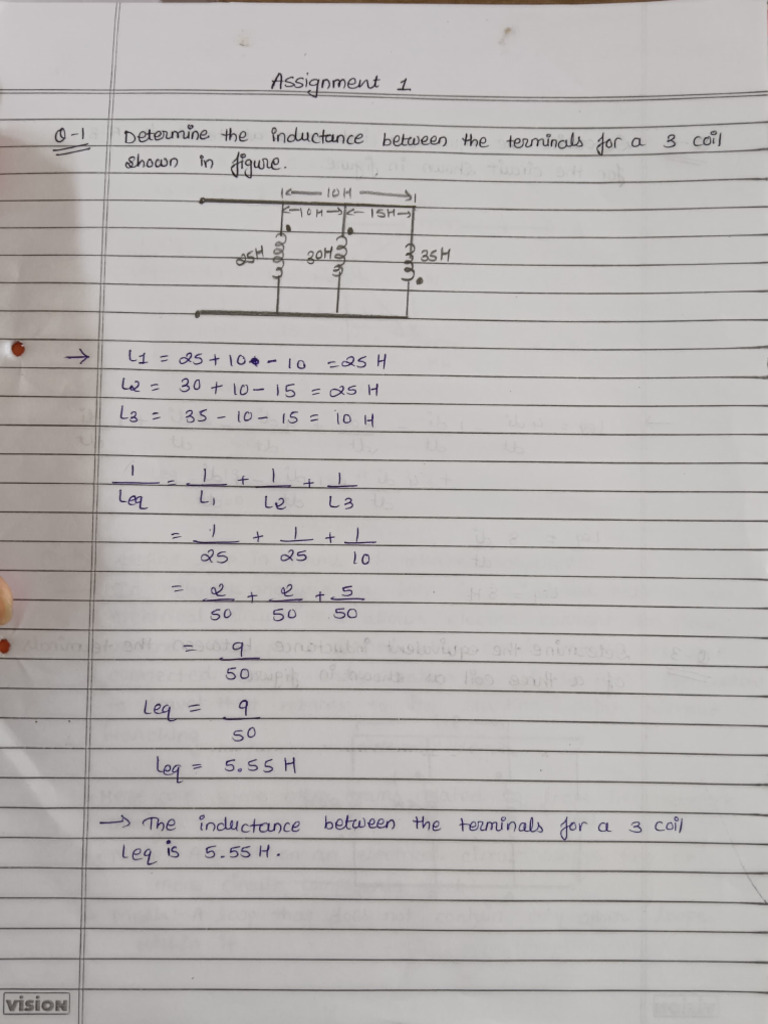 Assignment 1
Q-1 Determine the inductance between the terminals for a 3 coil
shown in figure.
10H
10H 15H
25H 30H 35H
→ L1 = 25 + 10 - 10 = 25 H
L2 = 30 + 10 - 15 = 25 H
L3 = 35 - 10 - 15 = 10 H
1/Leq = 1/L1 + 1/L2 + 1/L3
= 1/25 + 1/25 + 1/10
= 2/50 + 2/50 + 5/50
= 9/50
Leq = 9/50
Leq = 5.55 H
→ The inductance between the terminals for a 3 coil
Leq is 5.55 H.
vision